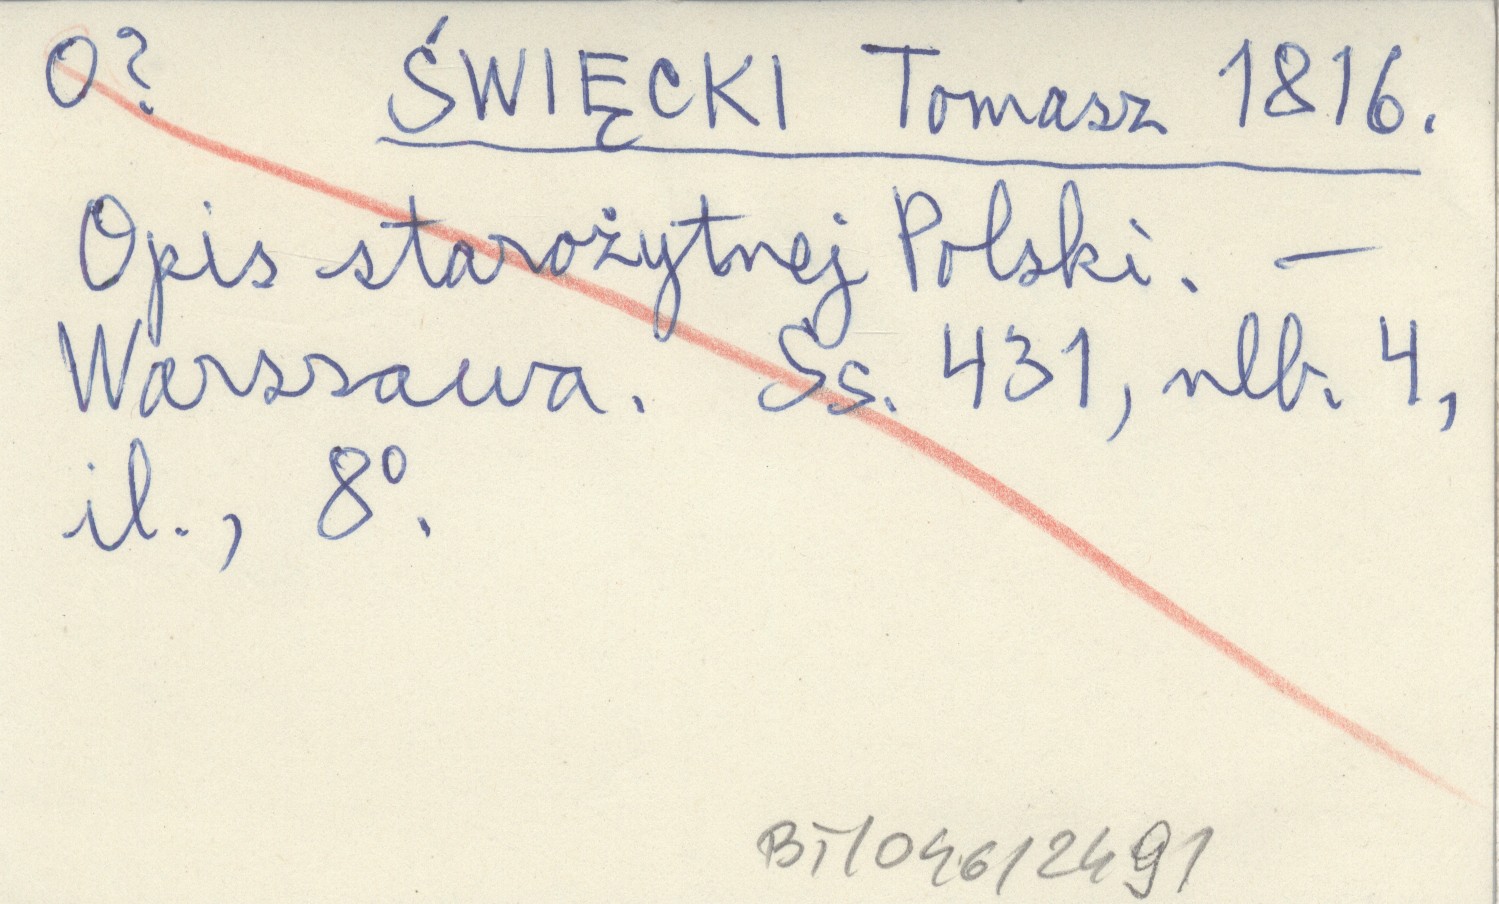 O? ŚWIĘCKI Tomasz 1816.
Opis starożytnej Polski. —
Warszawa. Ss. 431, nlb. 4,
il., 8º.
BT/046/2491